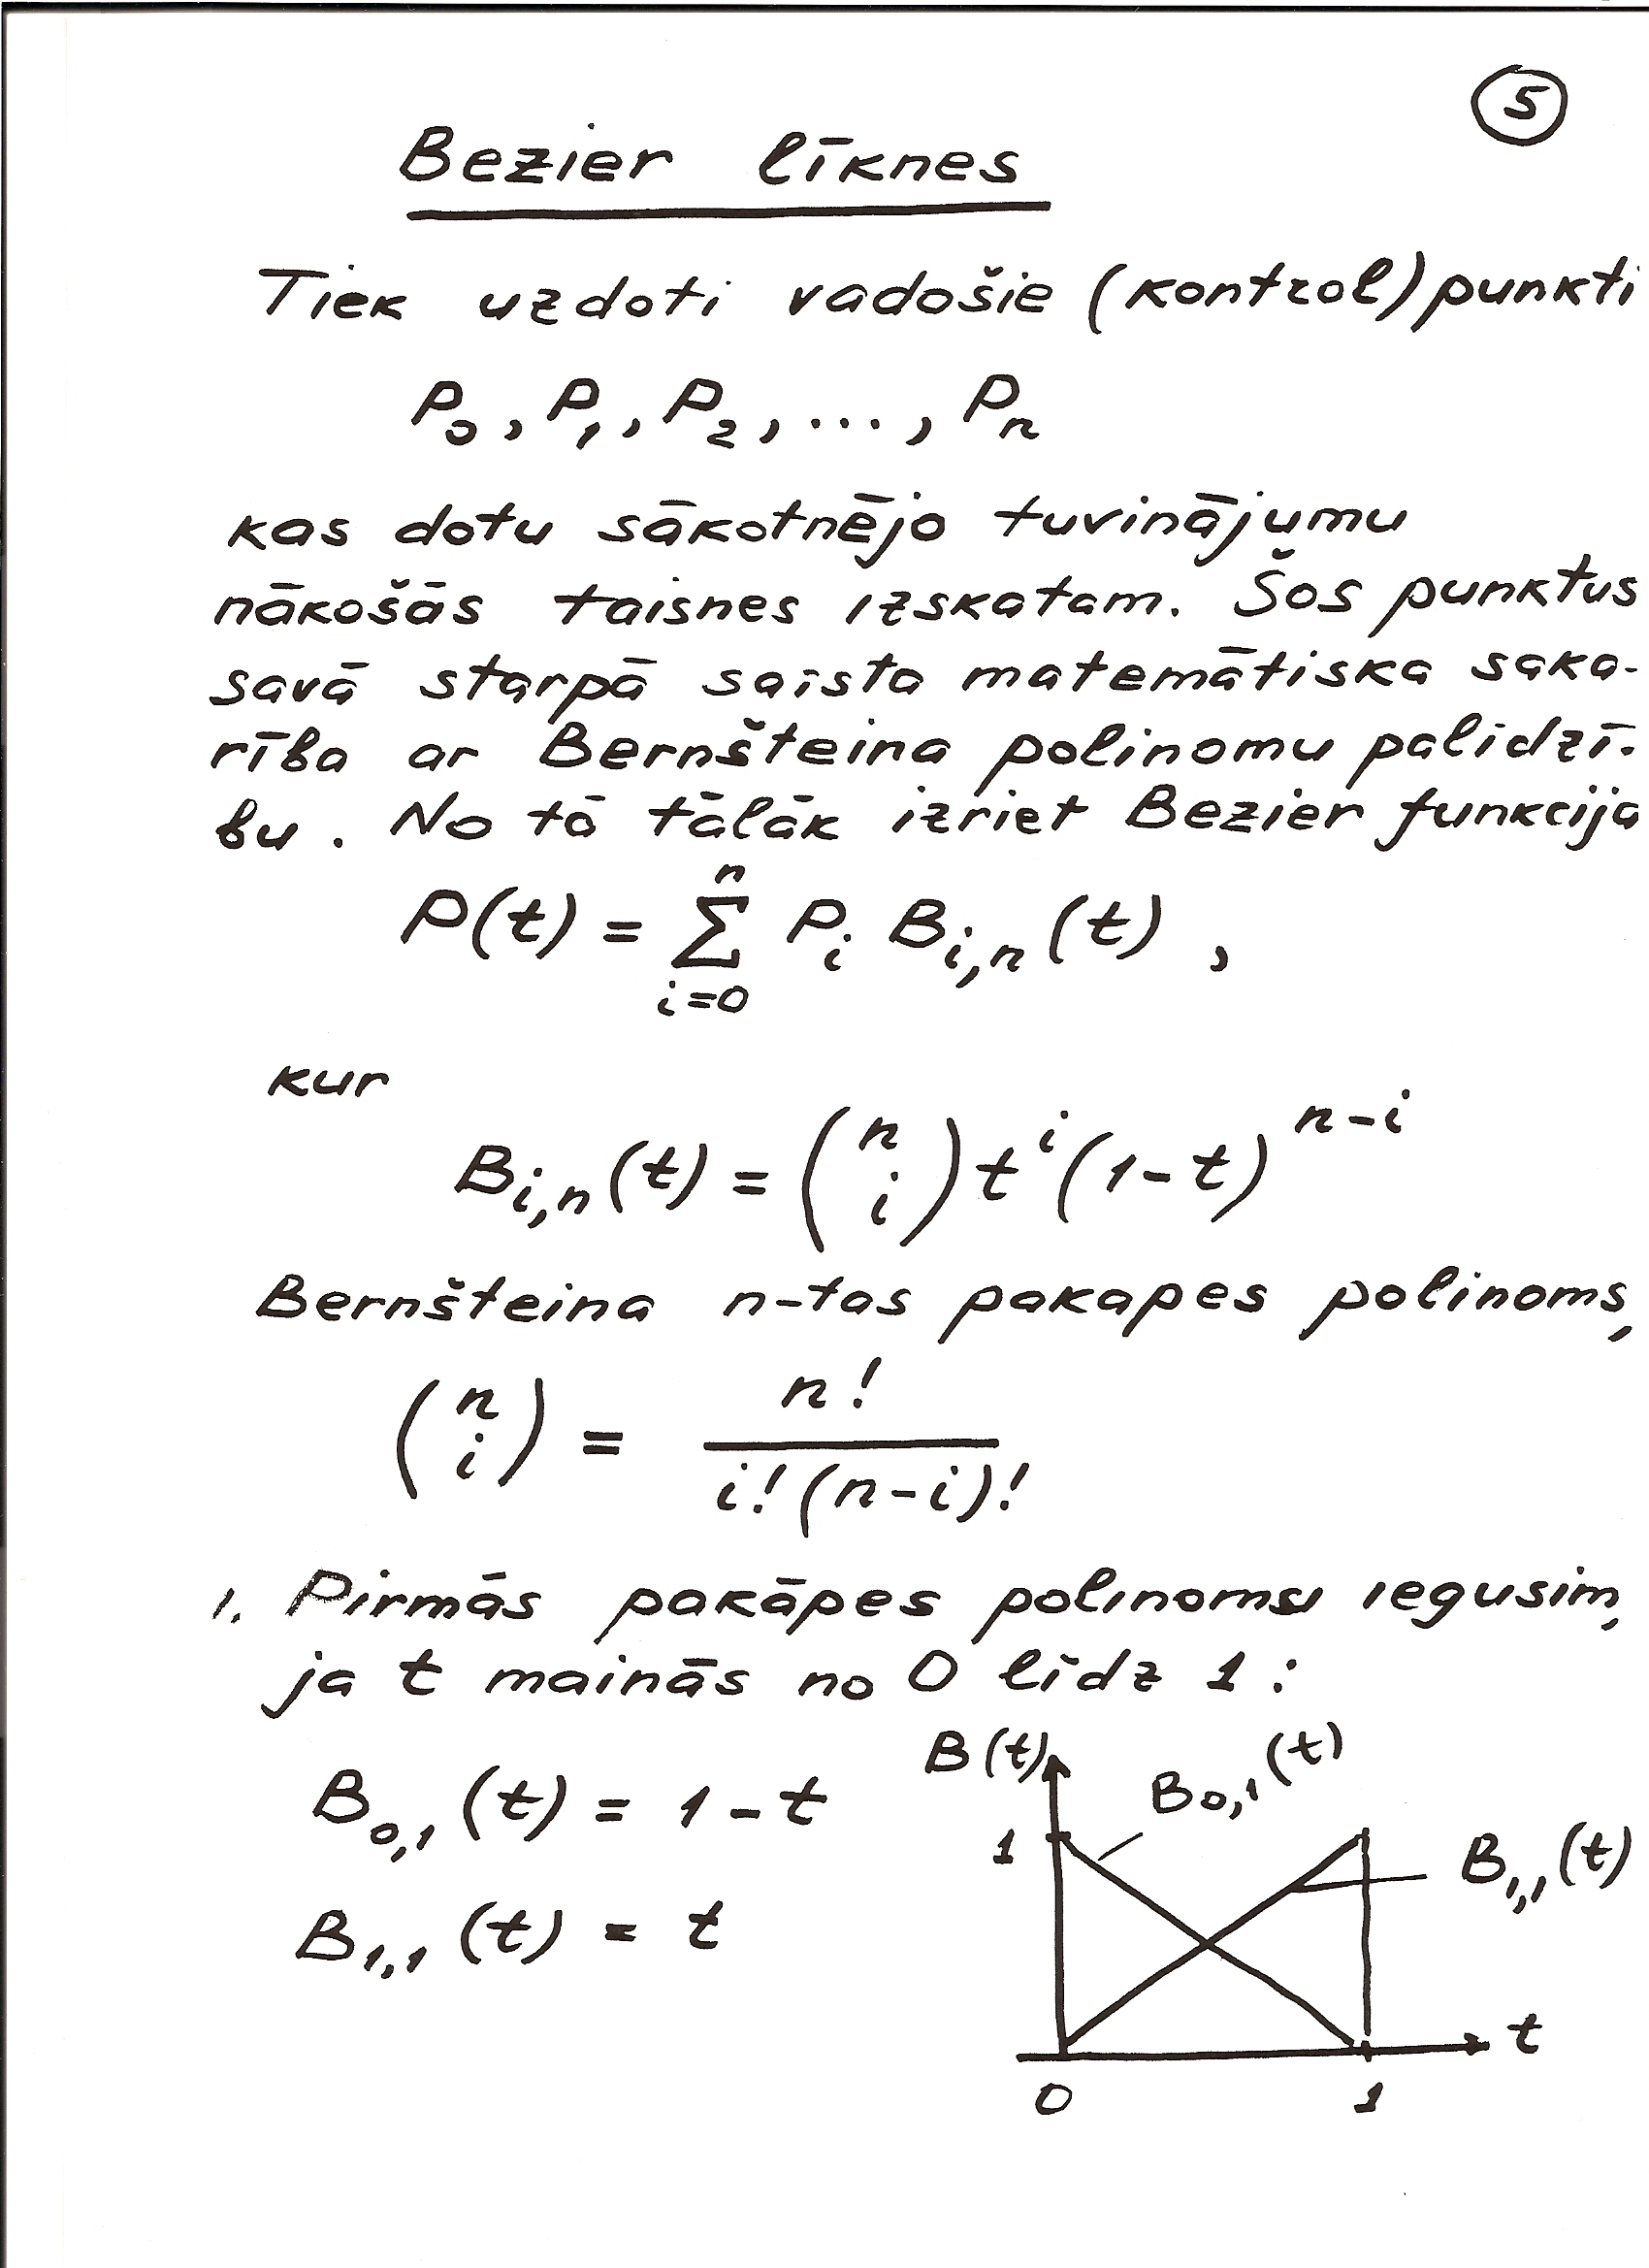 5
Bezier līknes
Tiek uzdoti vadošie (kontrol) punkti
P₀, P₁, P₂, ..., Pₙ
kas dotu sākotnējo tuvinājumu
nākošās taisnes izskatam. Šos punktus
savā starpā saista matemātiska saka-
rība ar Bernšteina polinomu palidzī-
bu. No tā tālāk izriet Bezier funkcija
P(t) = ∑ᵢ₌₀ⁿ Pᵢ Bᵢ,ₙ(t) ,
kur
Bᵢ,ₙ(t) = (n i) tⁱ(1-t)ⁿ⁻ⁱ
Bernšteina n-tas pakapes polinoms,
(n i) = n! / i!(n-i)!
1. Pirmās pakāpes polinomsı iegusim,
ja t mainās no 0 līdz 1 :
B₀,₁(t) = 1-t
B₁,₁(t) = t
B(t)
B₀,₁(t)
1
B₁,₁(t)
t
0 1